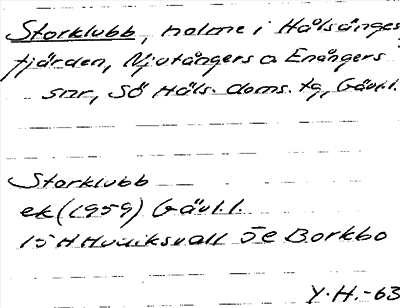 Storklubb, holme i Hålsänges
fjärden, Njutångers o Enångers
snr, Sö Häls. doms. tg, Gävl.l.
Storklubb
ek (1959) Gävl.l.
15 H Hudiksvall 5e Borkbo
Y.H.-63